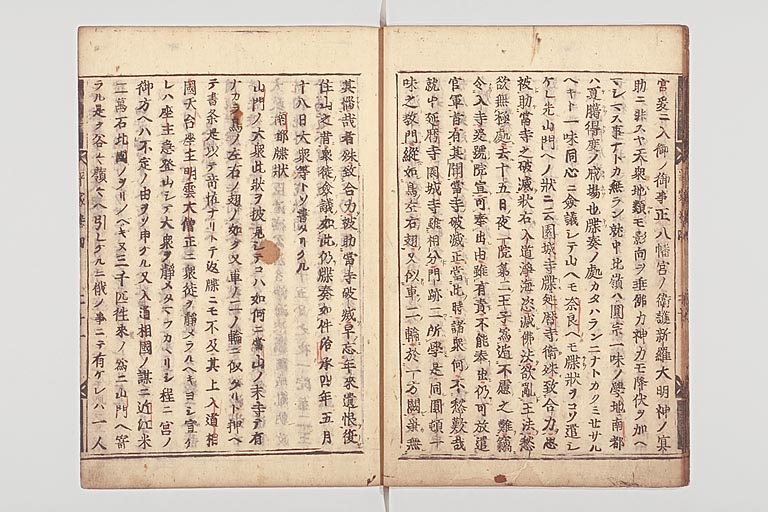 宮爰ニ入御ノ御事正八幡宮ノ衛護新羅大明神ノ冥
助ニ非スヤ天衆地類モ影向ヲ垂佛力神力モ降伏ヲ加ヘ
マシマス事ナトカ無ラン就中北嶺ハ圓宗一味ノ學地南都
ハ夏臈得度ノ戒場也牒奏ノ處カタハラン
ヘキト一味同心ニ僉議シテ山ヘモ奈良ヘモ牒狀ヲコソ遣シ
ケレ先山門ヘノ狀ニ云園城寺牒延暦寺衙殊致合力
被助當寺之破滅狀右入道淨海恣滅佛法欲亂王法愁
欲無極處去十五日夜一院第二王子爲遁不慮之難竊
令入寺爰號院宣可奉出由雖有責不能奉出仍可放遣
官軍旨有其聞當寺破滅正當此時諸衆何不愁歎哉
就中延暦寺園城寺雖相分門跡二所學是同圓頓
味之敎門縱如鳥左右翅又似車二輪於一方闕無
其惱哉者殊致合力被助當寺破滅早忘年來遺恨復
住山之昔衆徒僉議如此仍牒奏如件治承四年五月
十八日大衆等トソ書タリケル
南都牒狀
山門ノ大衆此狀ヲ披見シテコハ如何ニ當山ノ末寺テ有
ナカラ鳥ノ左右ノ翅ノ如ク又車ノ二ノ輪ニ似タリト押ヘ
テ書条是以テ奇怪ナリトテ返牒ニモ不及其上入道相
國天台座主明雲大僧正ニ衆徒ヲ靜メラルヘキヨシ宣ケ
レハ座主急登山シテ大衆ヲ靜メタマフカヽリシ程ニ宮ノ
御方ヘハ不定ノ由ヲソ申ケル又入道相國ノ謀ニ近江米
二萬石北國ノヲリノヘキヌ三千匹往來ノ爲ニ山門ヘ寄
ラル是ヲ谷々嶺々ヘ引レケルニ俄ノ事ニテ有ケレハ一人